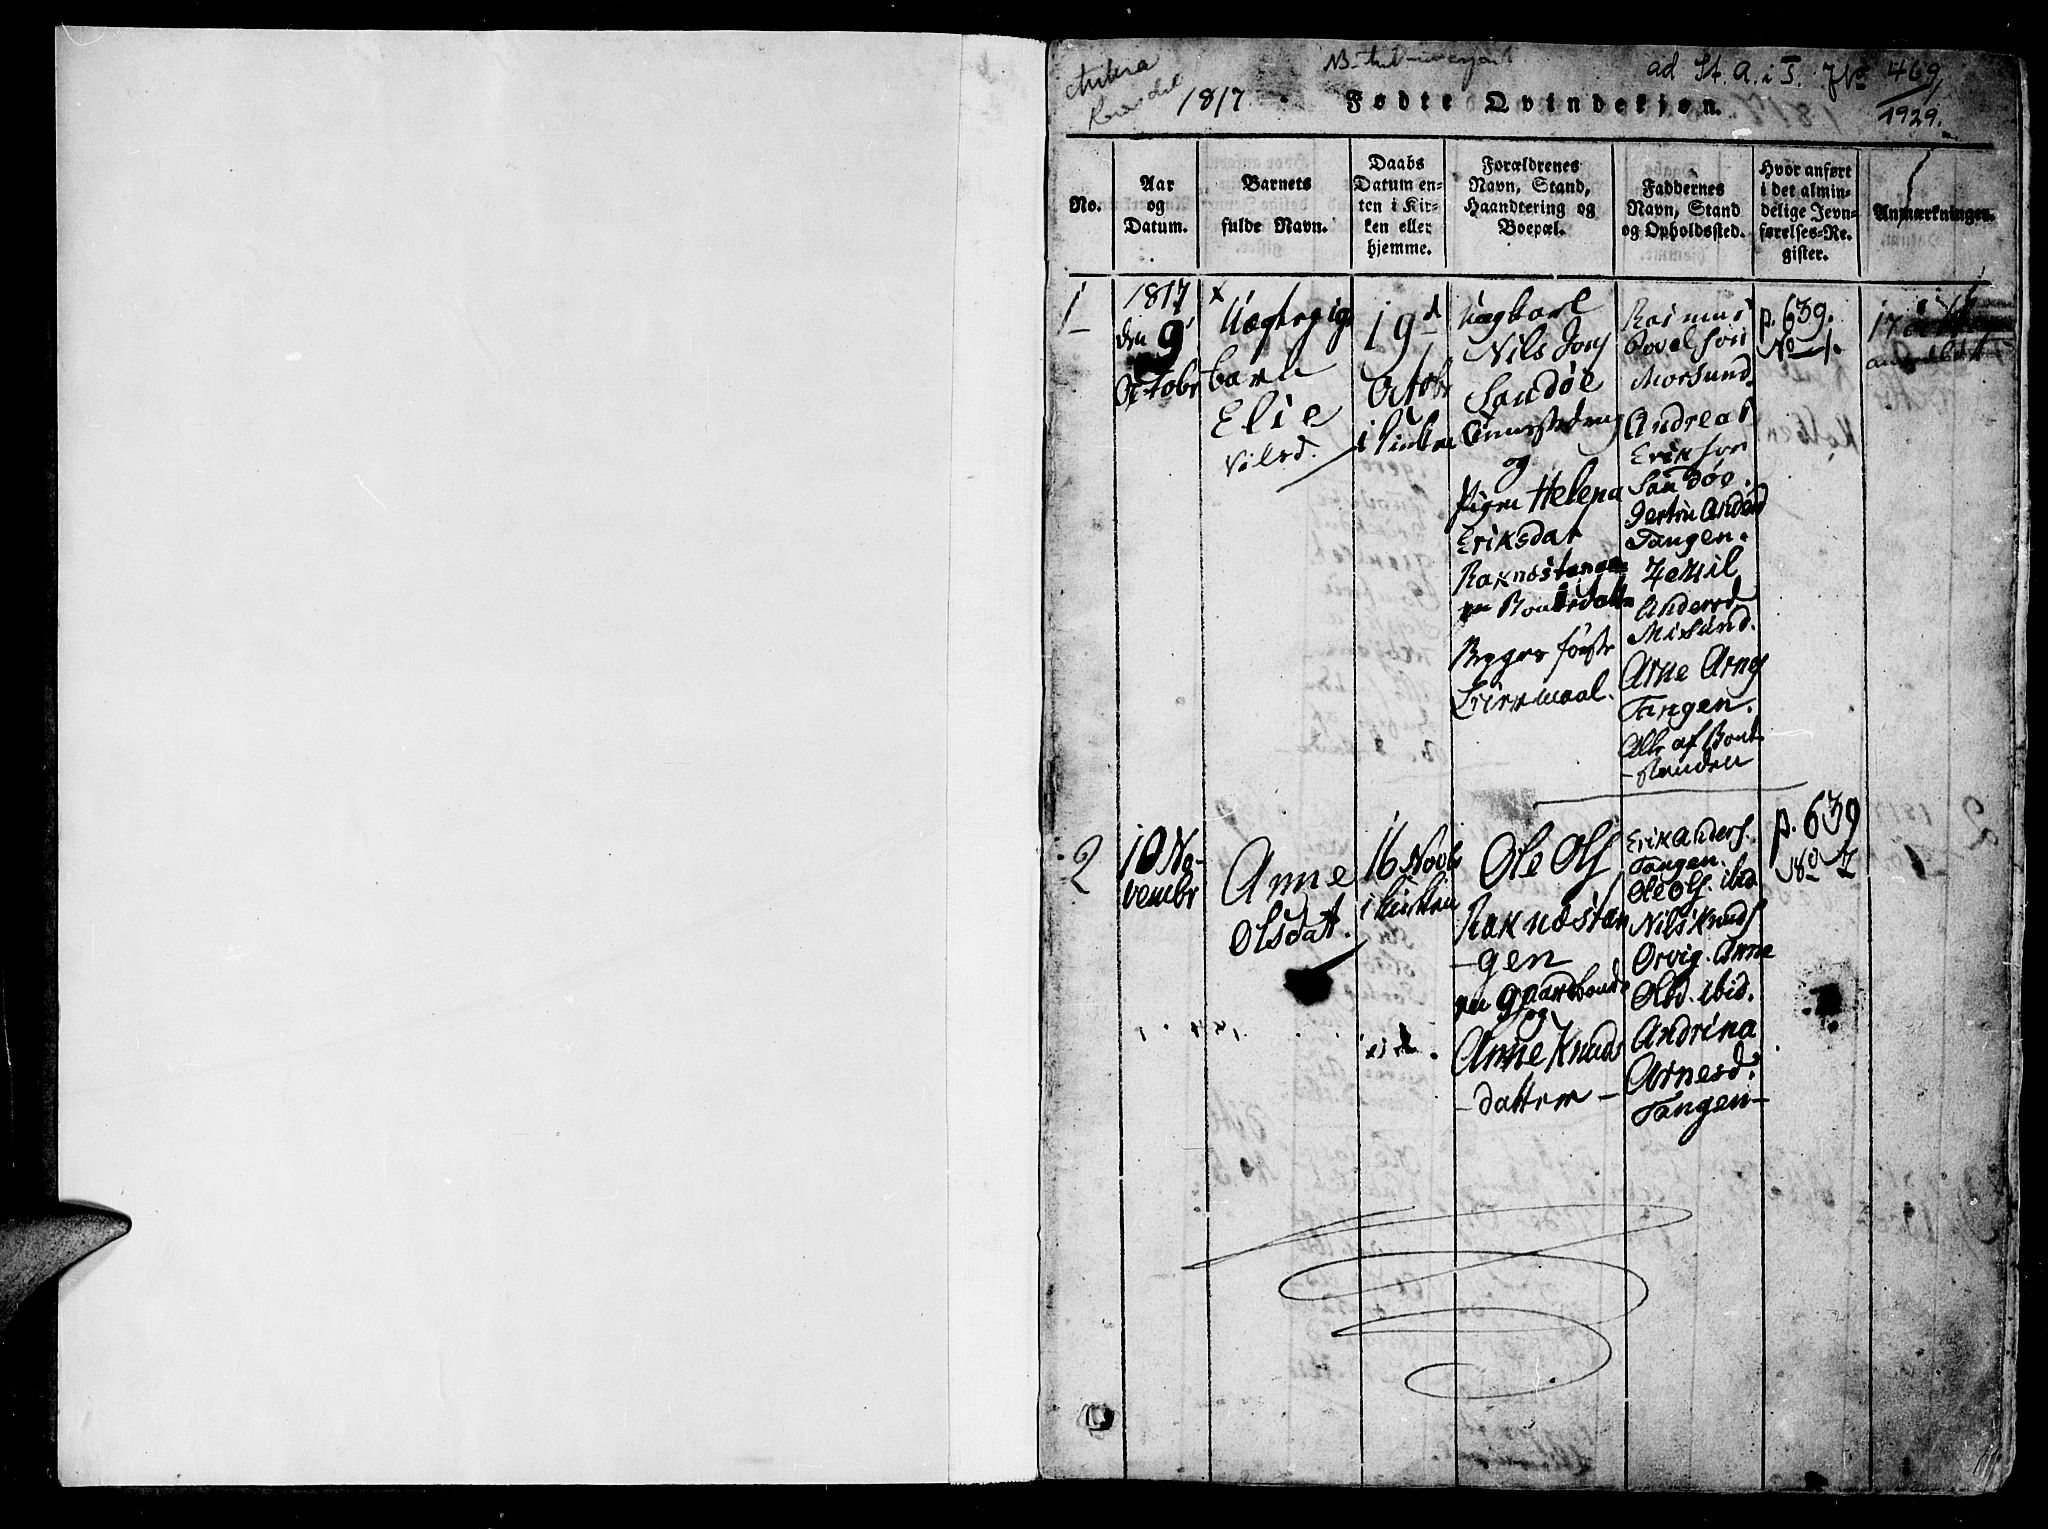 ad St. A. i T. No 469
1817. Fødte Qvindekjøn. 1929.
No.
Aar
og
Datum.
Barnets
fulde Navn.
Daabs
Datum en-
ten i Kir-
ken eller
hjemme.
Forældrenes
Navn, Stand,
Haandtering og
Boepæl.
Faddernes
Navn, Stand
og Opholdssted.
Hvor anført
i det almin-
delige Jevn-
førelses-Re-
gister.
Anmærkninger.
1
1817
den 9
October
Uægte pige
barn
Elie
Nilsd.
19d
Octobr
i Kirken
Ungkarl
Nils Jons
Sandøe
og
Pigen Helena
Eriksdat
Raknestangen
en Bondedatter
Begges første
Leiermaal.
Rasmus
Povelson
Morsund.
Andreas
Erikson
Sandøe.
Gertru Andersd
Tangen.
Zezil
Andersd
Misund.
Arne Arnes
Tangen.
Alle af Bonde
-standen
p. 639.
No 1.
2
10 No-
vembr
Anne
Olsdat.
16 Novbr
i Kirken
Ole Ols
Raknestan
-gen
en gaardbonde
og
Anne Knuds
-datter-
Erik Anders.
Tangen.
Ole Ols. ibid
Nils Knuds
Orvig. Anne
Olsd. ibid.
Andrina
Arnesd.
Tangen-
p. 639
No 2